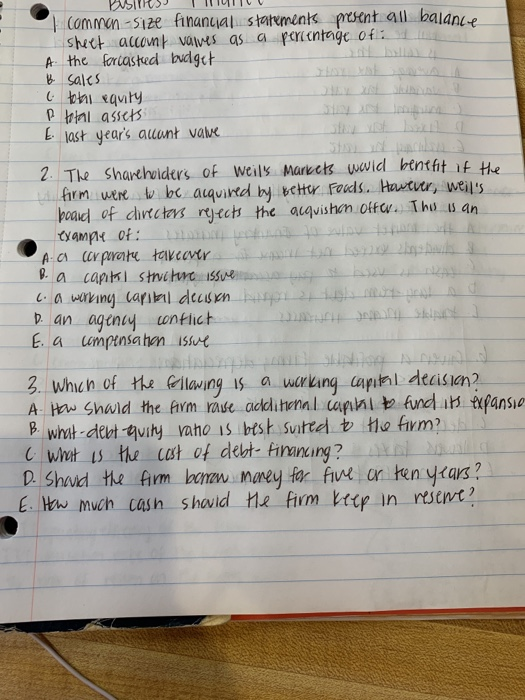 1 common-size financial statements present all balance
sheet account values as a percentage of:
A. the forcasted budget
B. sales
C. total equity
D total assets
E. last year's account value
2. The shareholders of Weil's Markets would benefit if the
firm were to be acquired by Better Foods. However, Weil's
board of directors rejects the acquisition offer. This is an
example of:
A. a corporate takeover
B. a capital structure issue
C. a working capital decision
D. an agency conflict
E. a compensation issue
3. Which of the following is a working capital decision?
A. How should the firm raise additional capital to fund its expansio
B. what-debt-equity ratio is best suited to the firm?
C What is the cost of debt-financing?
D. Should the firm borrow money for five or ten years?
E. How much cash should the firm keep in reserve?